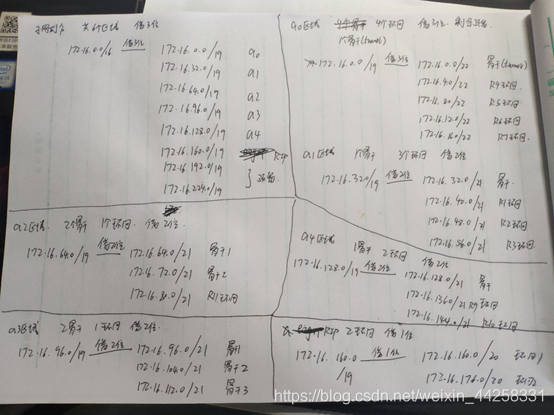 子网划分 共6个区域 借3位
172.16.0.0/16 借3位 172.16.0.0/19 a0
172.16.32.0/19 a1
172.16.64.0/19 a2
172.16.96.0/19 a3
172.16.128.0/19 a4
172.16.160.0/19 RIP
172.16.192.0/19
172.16.224.0/19
a0区域 4个环回 借3位
骨干(tunnel)
172.16.0.0/19 借3位 172.16.0.0/22 骨干(tunnel)
172.16.4.0/22 R4环回
172.16.8.0/22 R5环回
172.16.12.0/22 R6环回
172.16.16.0/22 R7环回
a1区域 1个骨干 3个环回 借2位
172.16.32.0/19 借2位 172.16.32.0/21 骨干
172.16.40.0/21 R1环回
172.16.48.0/21 R2环回
172.16.56.0/21 R3环回
a2区域 2个骨干 1个环回 借2位
172.16.64.0/19 借2位 172.16.64.0/21 骨干1
172.16.72.0/21 骨干2
172.16.80.0/21 R11环回
a4区域 1骨干 2环回 借2位
172.16.128.0/19 借2位 172.16.128.0/21 骨干
172.16.136.0/21 R9环回
172.16.144.0/21 R10环回
a3区域 2骨干 1环回 借2位
172.16.96.0/19 借2位 172.16.96.0/21 骨干1
172.16.104.0/21 骨干2
172.16.112.0/21 骨干3
RIP 2环回 借1位
172.16.160.0 借1位 172.16.160.0/20 环回1
/19 172.16.176.0/20 环回2
https://blog.csdn.net/weixin_44258331